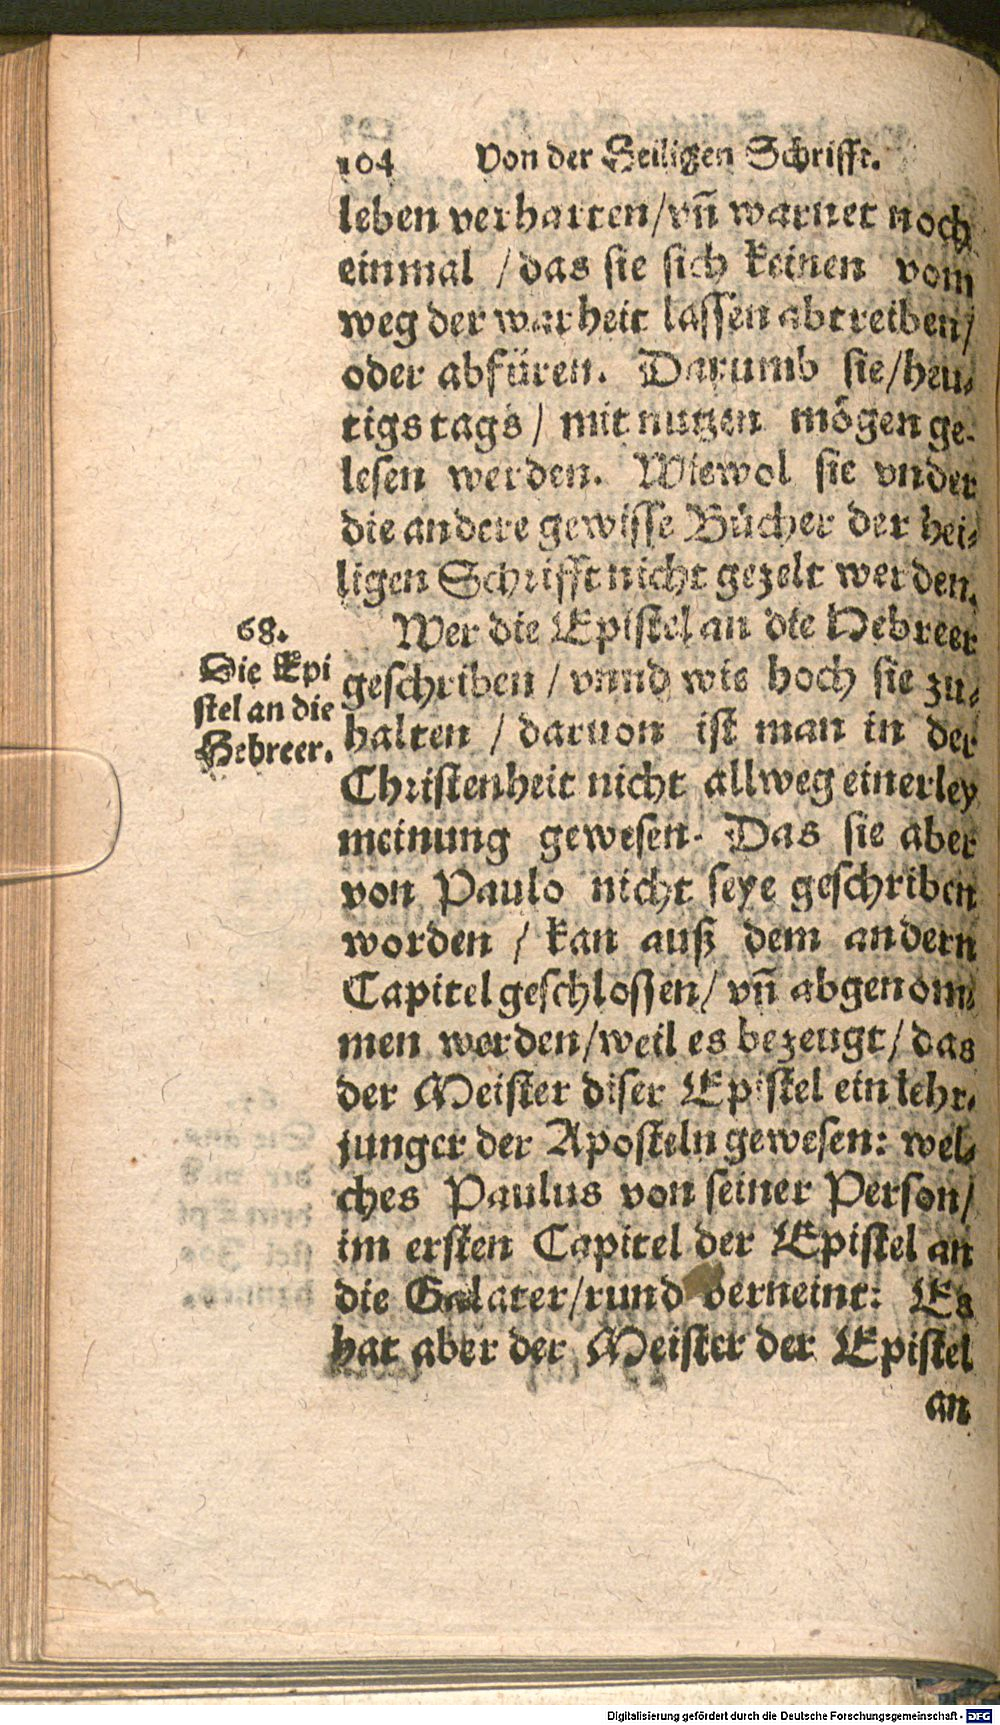 104 Von der Heiligen Schrifft.
leben verharren/vñ warnet noch
einmal / das sie sich keinen vom
weg der warheit lassen abtreiben/
oder abfüren. Darumb sie/heu-
tigs tags / mit nutzen mögen ge-
lesen werden. Wiewol sie vnder
die andere gewisse Bücher der hei-
ligen Schrifft nicht gezelt werden.
68.
Die Epi
stel an die
Hebreer.
Wer die Epistel an die Hebreer
geschriben / vnnd wie hoch sie zu-
halten / daruon ist man in der
Christenheit nicht allweg einerley
meinung gewesen. Das sie aber
von Paulo nicht seye geschriben
worden / kan auß dem andern
Capitel geschlossen/ vñ abgenom-
men werden/weil es bezeugt/ das
der Meister diser Epistel ein lehr-
junger der Aposteln gewesen: wel-
ches Paulus von seiner Person/
im ersten Capitel der Epistel an
die Galater/rund verneint: Es
hat aber der Meister der Epistel
an
Digitalisierung gefördert durch die Deutsche Forschungsgemeinschaft - DFG